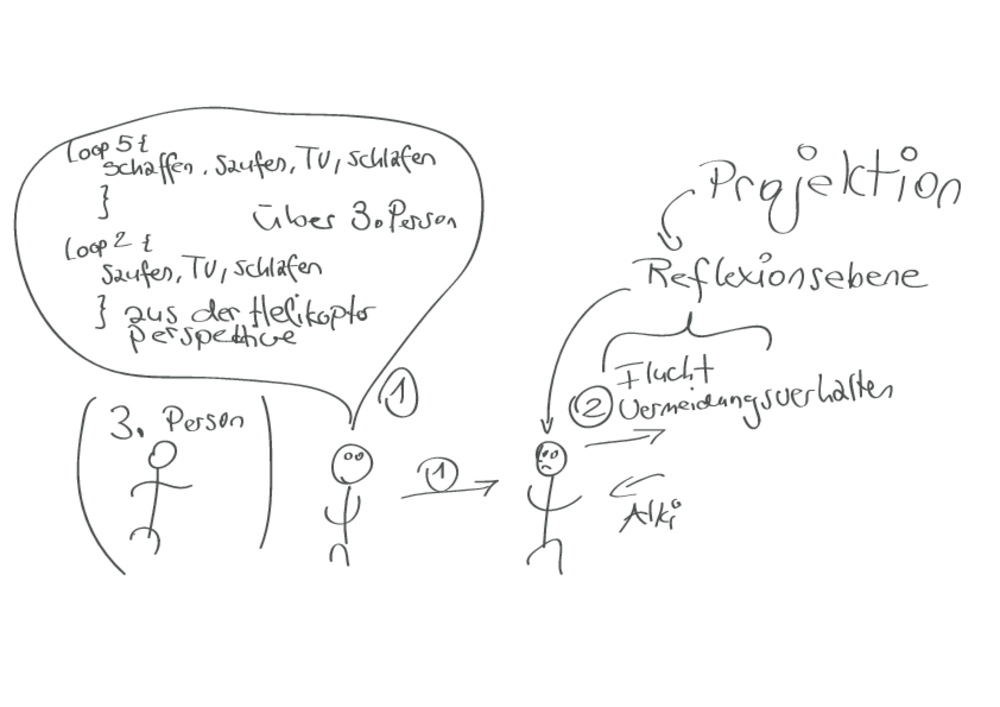 loop 5 {
schaffen, saufen, TV, schlafen
}
über 3. Person
loop 2 {
saufen, TV, schlafen
} aus der Helikopter
perspektive
1
3. Person
1
Projektion
Reflexionsebene
Flucht
2 Vermeidungsverhalten
Alki